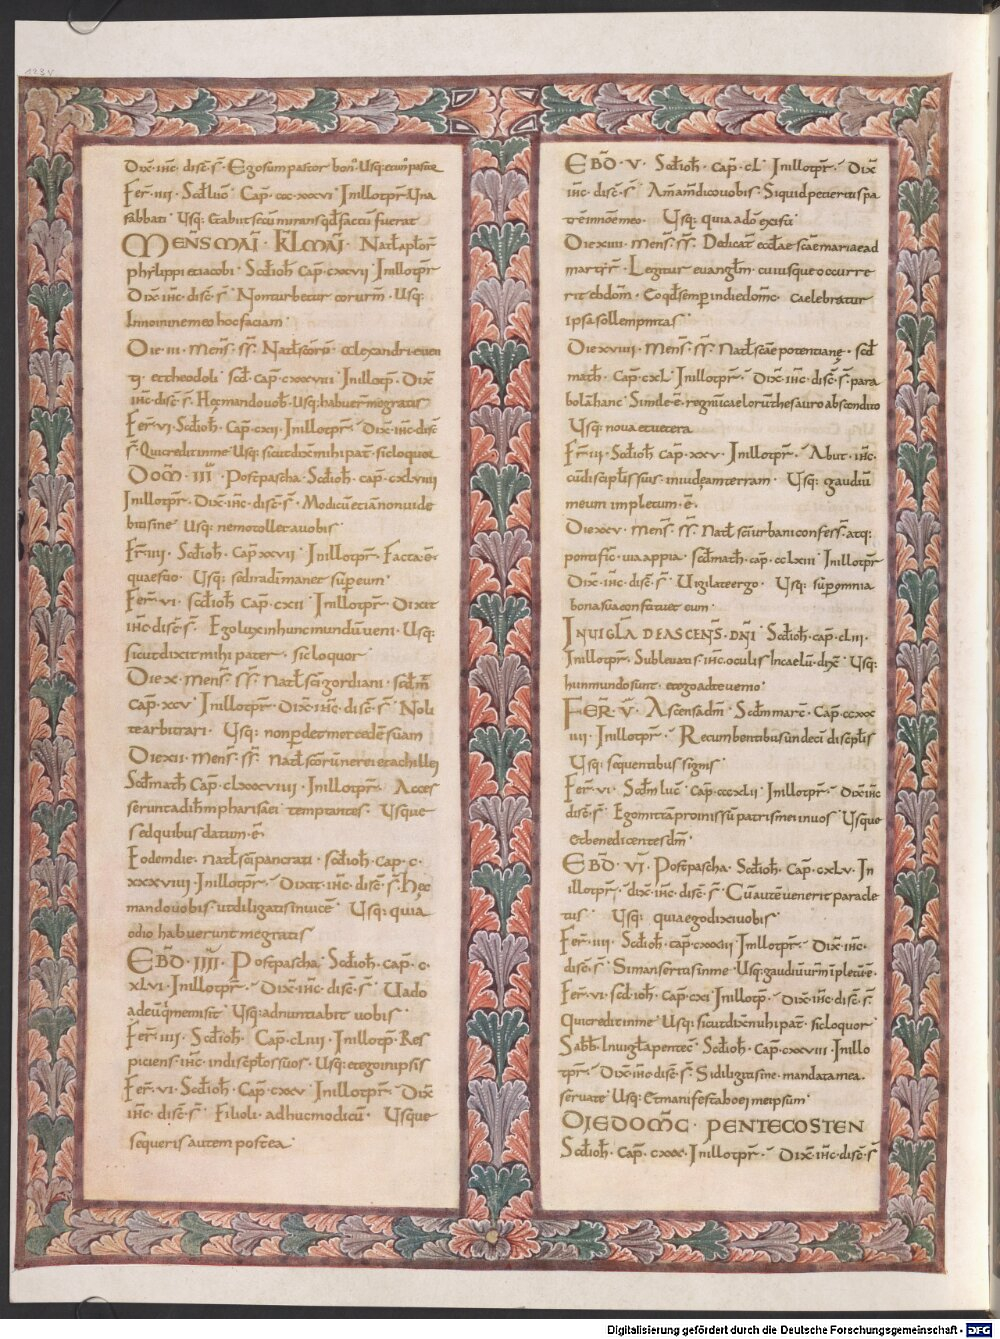 123v
Dix̄ · ihc̄ · disc̄ · s̄ · Ego sum pastor bon' Usq: et un' pastor
Fer̄ · IIII · Scd̄ luc̄ · Cap̄ · CCC · XXXVI · In illo tp̄r · Una
sabbati · Usq: Et abiit secum mirans qd̄ factū fuerat
MENS̄ MAĪ · KL̄ MAĪ · Nat̄ · apl̄or̄
phylippi et iacobi · Scd̄ ioh̄ · Cap̄ · CXXVII · In illo tp̄r
Dix̄ · ihc̄ · disc̄ · s̄ · Non turbetur cor urm̄ · Usq:
In nomine meo hoc faciam ·
Die · III · mens̄ · ss̄ · Nat̄ · scōrū · alexandri euen
tii · et theodoli · scd̄ · Cap̄ · CXXXVIII · In illo tp̄ · Dix̄
ihc̄ · disc̄ · s̄ · Hec mando uob̄ · Usq: habuer̄ me gratis
Fer̄ · VI · Scd̄ ioh̄ · Cap̄ · CXII · In illo tp̄r · Dix̄ · ihc̄ · disc̄
s̄ · Qui credit in me · Usq: sicut dix̄ mihi pat̄ · sic loquor
DOM̄ · III · Post pascha · Scd̄ ioh̄ · cap̄ · CXLVIIII
In illo tp̄r · Dix̄ · ihc̄ · disc̄ · s̄ · Modicū et iā non uide
bitis me · Usq: nemo tollet a uobis ·
Fr̄ · IIII · Scd̄ ioh̄ · Cap̄ XXVII · In illo tp̄r · Facta ē ·
quaestio · Usq: sed ira dī manet sup̄ eum ·
Fer̄ · VI · scd̄ ioh̄ · Cap̄ · CXII · In illo tp̄r · Dixit
ihc̄ · disc̄ · s̄ · Ego lux in hunc mundū ueni · Usq:
sicut dixit mihi pater · sic loquor ·
Die X · mens̄ · ss̄ · Nat̄ · scī gordiani · scd̄ m̄
Cap̄ · XCV · In illo tp̄r · Dix̄ · ihc̄ · disc̄ · s̄ · Noli
te arbitrari · Usq: non pdet mercedē suam
Die XII · mens̄ · ss̄ · Nat̄ · scōrū nerei et achillei
Scd̄ math̄ · Cap̄ · CLXXXVIIII · In illo tp̄r · Acces
serunt ad ihm̄ pharisaei temptantes · Usque
sed quibus datum ē ·
Eodem die · nat̄ · scī pancrati · scd̄ ioh̄ · cap̄ · C ·
XXXVIIII · In illo tp̄r · Dixit · ihc̄ · disc̄ · s̄ · Hec
mando uobis ut diligatis inuicē · Usq: quia
odio habuerunt me gratis
EBD̄ · IIII · Post pascha · Scd̄ ioh̄ · Cap̄ · C ·
XLVI · In illo tp̄r · Dix̄ · ihc̄ · disc̄ · s̄ · Uado
ad eū q̄ me misit · Usq: adnuntiabit uobis ·
Fer̄ · IIII · Scd̄ ioh̄ · Cap̄ · CLIIII · In illo tp̄ · Res
piciens · ihc̄ · in discip̄los suos · Usq: et ego in ipsis
Fer̄ · VI · Scd̄ ioh̄ · Cap̄ · CXXV · In illo tp̄r · Dix̄
ihc̄ · disc̄ · s̄ · Filioli · adhuc modicū · Usque
sequeris autem postea ·
EBD̄ · V · Scd̄ ioh̄ · Cap̄ · CL · In illo tp̄r · Dix̄
ihc̄ · disc̄ · s̄ · Am̄ am̄ dico uobis · Siquid petieritis pa
trē in nōe meo · Usq: quia a dō existi
Die XIIII · mens̄ · ss̄ · Dedicat̄ · eccl̄ae scae mariae ad
martȳr · Legitur euangl̄m · cuiusque occurre
rit ebdom̄ · Eo qd̄ semp̄ in die dom̄c · caelebratur
ipsa sollempnitas ·
Die XVIIII · mens̄ · ss̄ · Nat̄ scae potentiane · scd̄
math̄ · Cap̄ · CXL · In illo tp̄r · Dix̄ · ihc̄ · disc̄ · s̄ · para
bolā hanc · Simile ē · regnū caelorū thesauro abscondito
Usq: noua et uetera
Fr̄ · III · Scd̄ ioh̄ · cap̄ · XXV · In illo tp̄r · Abiit · ihc̄ ·
cū discipl̄is suis · in iudeam terram · Usq: gaudiū
meum impletum · ē ·
Die XXV · mens̄ · ss̄ · Nat̄ scī urbani confess̄ · atq:
pontific̄ · uia appia · scd̄ math̄ · cap̄ · CCLXIII · In illo tp̄r
Dix̄ · ihc̄ · disc̄ · s̄ · Uigilate ergo · Usq: sup̄ omnia
bona sua constituet eum ·
IN UIGL̄A DE ASCENS̄ · DN̄I · Scd̄ ioh̄ · cap̄ · CLIII ·
In illo tp̄r · Subleuatis · ihc̄ · oculis in caelū · dix̄ · Usq:
hi in mundo sunt · et ego ad te uenio ·
FER̄ · V̄ · Ascensa dn̄i · Scd̄m marc̄ · Cap̄ · CCXXX
IIII · In illo tp̄r · Recumbentibus undeci discipl̄is
Usq: sequentibus signis ·
Fer̄ · VI · Scd̄m luc̄ · Cap̄ · CCCXLII · In illo tp̄r · Dix̄ ihc̄
disc̄ · s̄ · Ego mittā promissū patris mei in uos · Usque
et benedicentes dm̄ ·
EBD̄ · VI · Post pascha · Scd̄ ioh̄ · Cap̄ · CXLV · In
illo tp̄r · dix̄ · ihc̄ · disc̄ · s̄a · Cū autē uenerit paracle
tus · Usq: quia ego dixi uobis ·
Fer̄ · IIII · Scd̄ ioh̄ · cap̄ · CXXXIII · In illo tp̄r · Dix̄ · ihc̄ ·
disc̄ · s̄ · Si manseritis in me · Usq: gaudiū urm̄ ipletū ē ·
Fer̄ · VI · scd̄ · ioh̄ · Cap̄ · CXI · In illo tp̄ · Dix̄ · ihc̄ · disc̄ · s̄
Qui credit in me · Usq: sicut dix̄ mihi pat̄ · sic loquor
Sabb̄ · In uigl̄a pentec̄ · Scd̄ ioh̄ · Cap̄ · CXXVIII · In illo
tp̄r · Dix̄ · ihc̄ · disc̄ · s̄ · Si diligitis me · mandata mea ·
seruate · Usq: Et manifestabo ei me ipsum ·
DIE DOM̄C · PENTECOSTEN
Scd̄ ioh̄ · Cap̄ · CXXX · In illo tp̄r · Dix̄ · ihc̄ · disc̄ · s̄
Digitalisierung gefördert durch die Deutsche Forschungsgemeinschaft - DFG